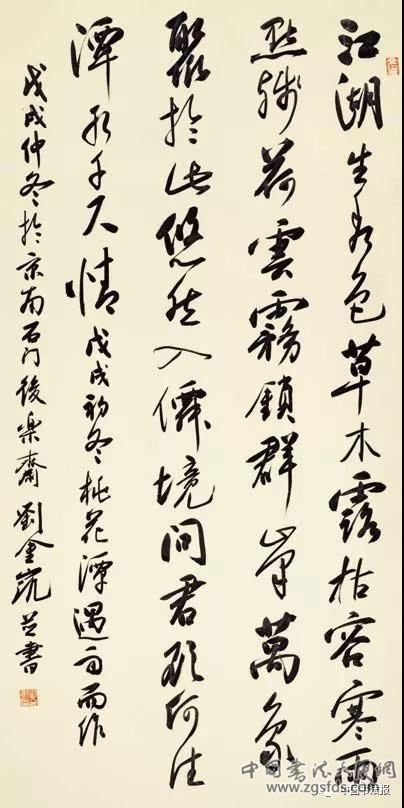 江湖生色草木露枯容寒雨
點殘荷雲霧鎖群峯萬象
聚於此悠然入僊境問君欲何往
潭水千尺情 戊戌初冬桃花潭遇雨而作
戊戌仲冬於京南石门後樂齋 劉金凯并書
中国书法大展网
www.zgsfds.com
中国书法报